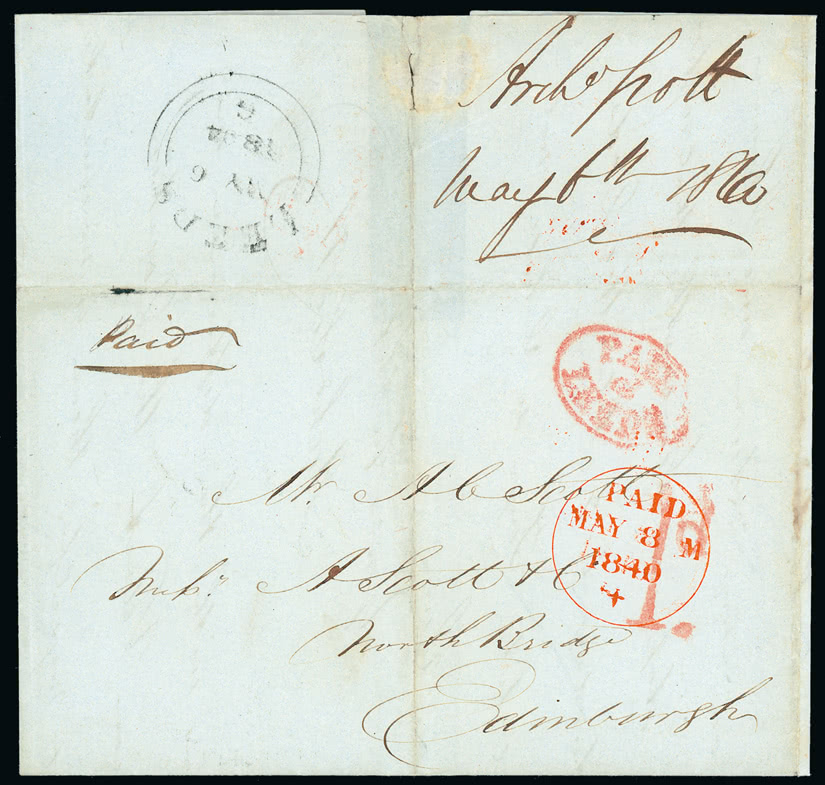 Archd Scott
May 6th 1840
LEEDS
MY 6
1840
Paid
PAID
LEEDS
Mr. A C Scott
PAID
MAY 8 M
1840
1.
A Scott & Co
North Bridge
Edinburgh